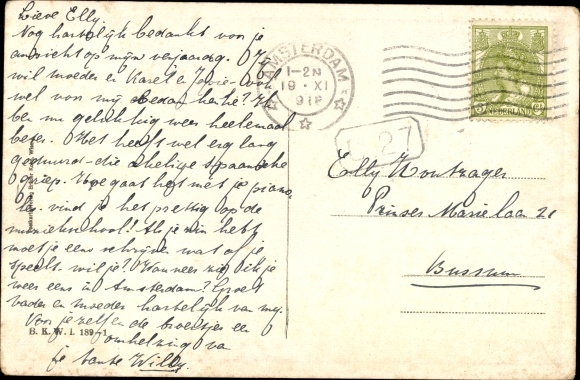 Lieve Elly,
Nog hartelijk bedankt voor je
ansicht op mijn verjaardag.
wil moeder en Karel en
wel van mij bedanken hè?
ben nu gelukkig weer heelemaal
beter. Het heeft wel erg lang
geduurd - die akelige spaansche
griep. Hoe gaat het met je piano
les. vind je het prettig op de
muziekschool? Als je zin hebt
moet je eens schrijven wat of je
speelt. wil je? Wanneer zie ik je
weer eens in Amsterdam? Groet
vader en moeder hartelijk van mij.
Voor je zelf en de broertjes een
omhelzing van
je tante Willy.
B. K. W. I. 189-1
AMSTERDAM
1-2N
19 XI
918
27
NEDERLAND
Elly Houtzager
Prinses Marielaan 21
Bussum